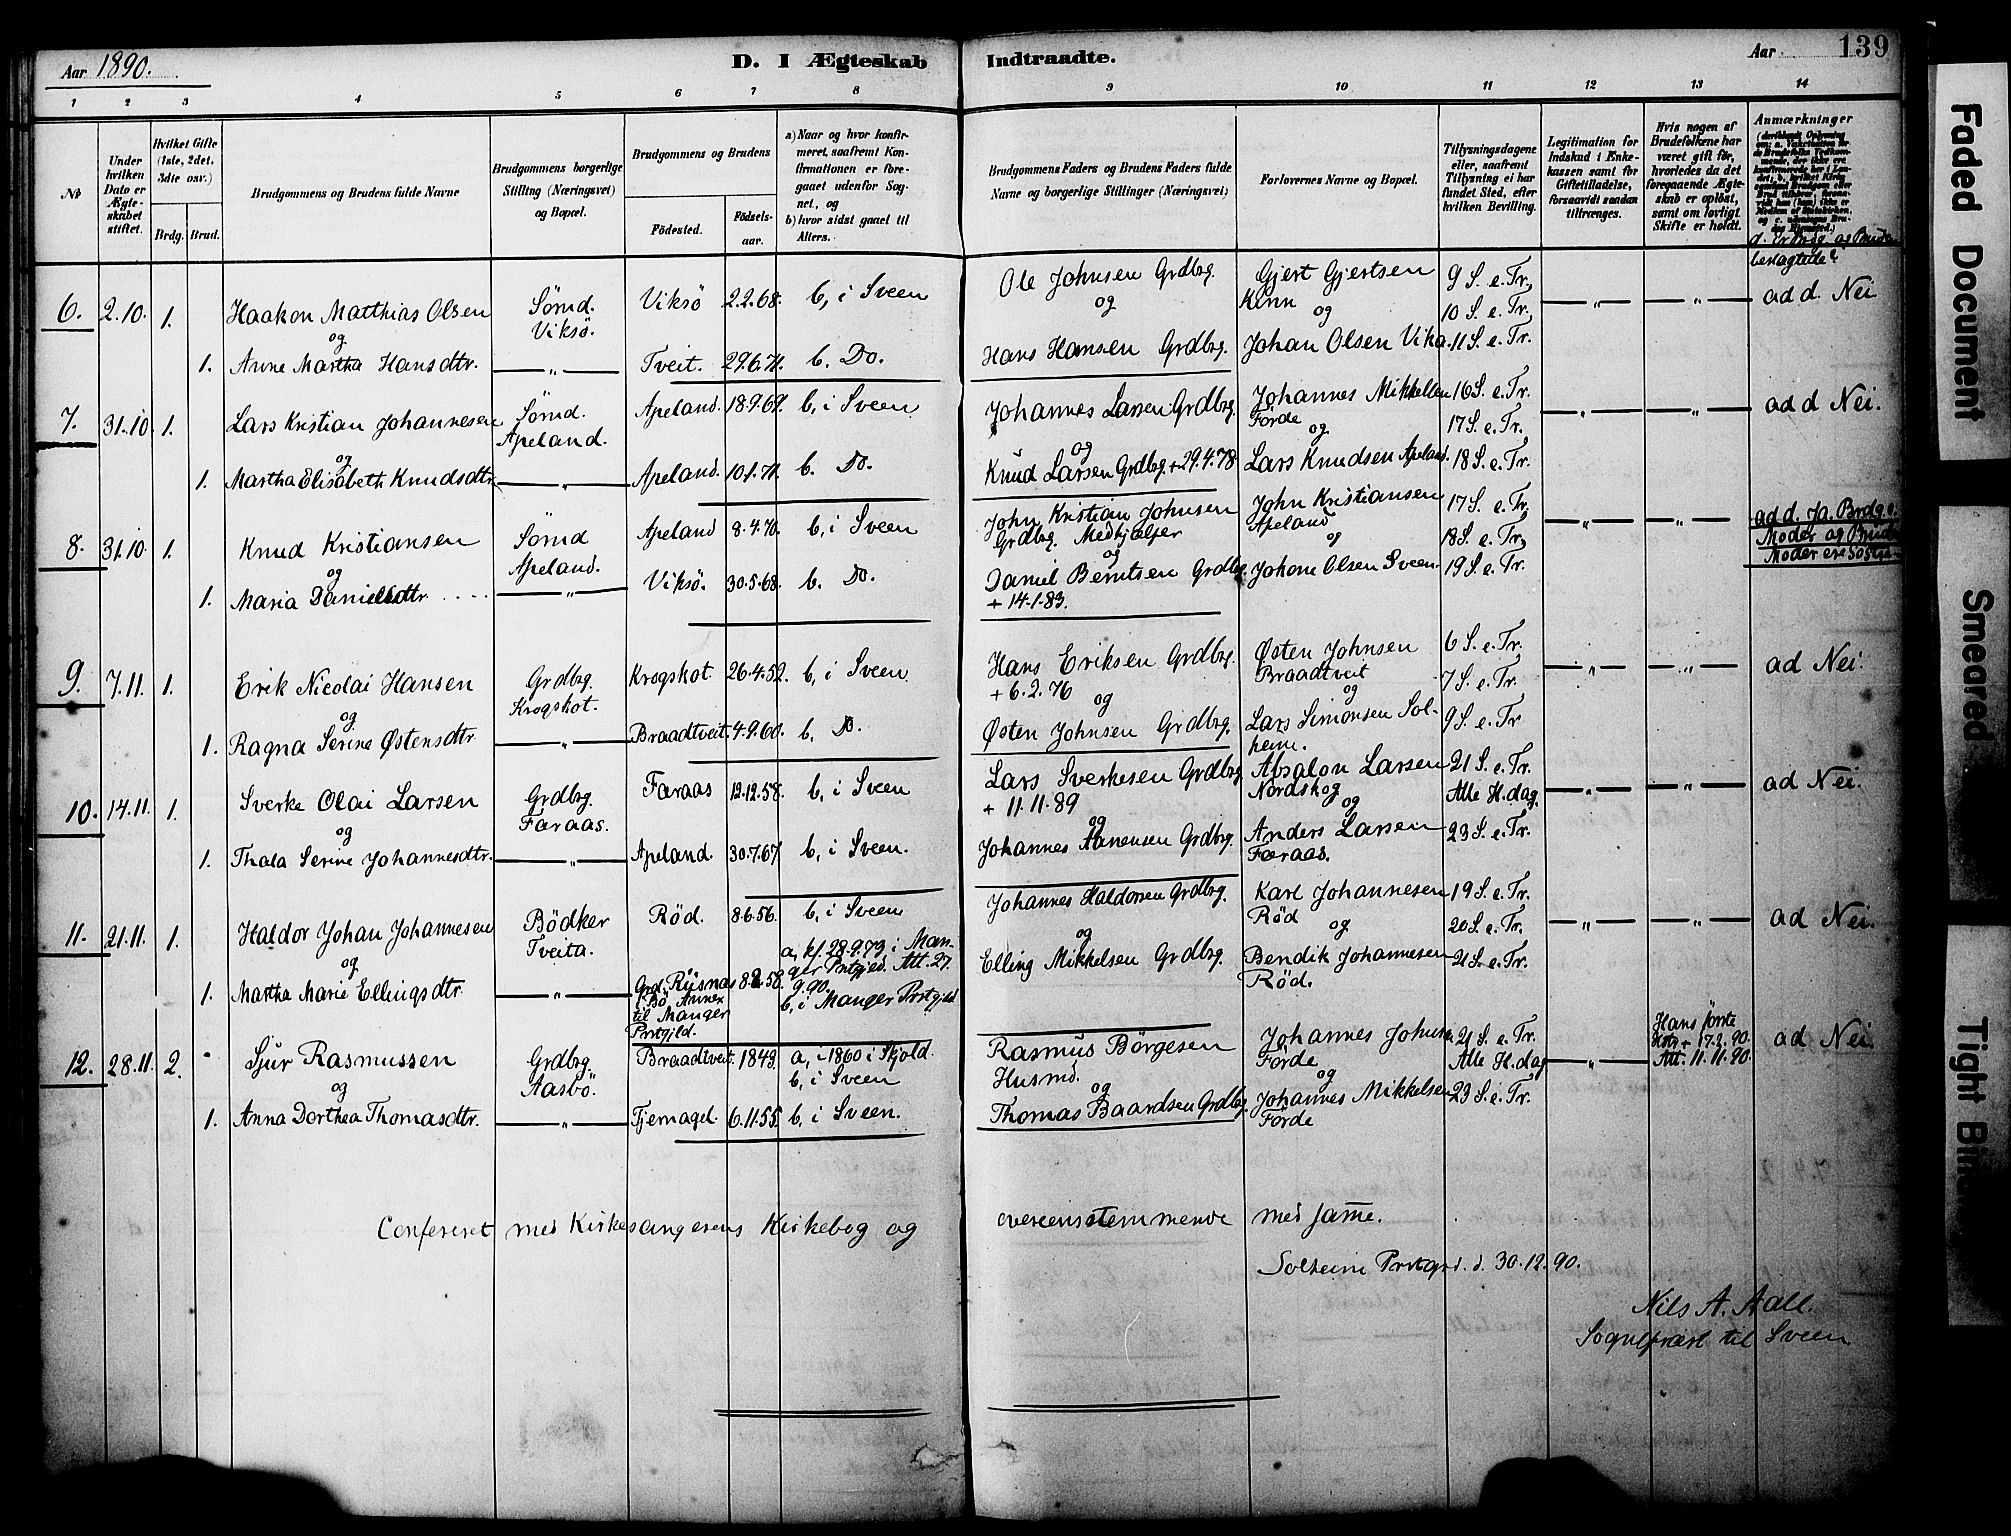 Aar 1890.
D. I Ægteskab Indtraadte.
Aar 139
1 2 3 4 5 6 7 8 9 10 11 12 13 14
No
Under hvilken Dato er Ægteskabet stiftet.
Hvilket Gifte (1ste, 2det, 3die osv.)
Brdg. Brud.
Brudgommens og Brudens fulde Navne
Brudgommens borgerlige Stilling (Næringsvei) og Bopæl.
Brudgommens og Brudens
Födested.
Födselsaar.
a) Naar og hvor konfirmeret, saafremt Konfirmationen er foregaaet udenfor Sognet, og
b) hvor sidst gaaet til Alters.
Brudgommens Faders og Brudens Faders fulde Navne og borgerlige Stillinger (Næringsvei)
Forlovernes Navne og Bopæl.
Tillysningsdagene eller, saafremt Tillysning ei har fundet Sted, efter hvilken Bevilling.
Legitimation for Indskud i Enkekassen samt for Giftetilladelse, forsaavidt saadan tiltrænges.
Hvis nogen af Brudefolkene har været gift før, hvorledes da det foregaaende Ægteskab er oplöst, samt om lovligt Skifte er holdt.
Anmærkninger
d. Er Brdg. og Bruden beslagtede?
6. 2.10. 1. Haakon Matthias Olsen Sömd. Viksö. Viksö 2.2.68. b, i Sveen Ole Johnsen Grdbrg. Gjert Gjertsen Kinn 9 S. e. Tr. 10 S. e. Tr. " " ad d. Nei
og og og
1. Anne Martha Hansdtr. " Tveit. 29.6.71. b. Do. Hans Hansen Grdbrg. Johan Olsen Vika. 11 S. e. Tr.
7. 31.10 1. Lars Kristian Johannesen Sömd. Apeland. Apeland. 18.9.69. b, i Sveen Johannes Larsen Grdbrg. Johannes Mikkelsen Förde 16 S. e. Tr. 17 S. e. Tr. " " ad d Nei.
og og og
1. Martha Elisabeth Knudsdtr. " Apeland. 10.1.71. b. Do. Knud Larsen Grdbrg. + 29.4.78. Lars Knudsen Apeland. 18 S. e. Tr.
8. 31.10. 1. Knud Kristiansen Sömd Apeland. Apeland 8.4.70. b, i Sveen John Kristian Johnsen Grdbrg. Medhjælper John Kristiansen Apeland 17 S. e. Tr. 18 S. e. Tr. " " ad d. Ja. Brdg.s Moder og Brudens Moder ere Söstre
og og og
1. Maria Danielsdtr. " Viksö. 30.5.68. b. Do. Daniel Berntsen Grdbrg. + 14.1.83. Johan Olsen Sveen 19 S. e. Tr.
9. 7.11. 1. Erik Nicolai Hansen Grdbrg. Krogshot. Krogshot 26.4.52. b, i Sveen. Hans Eriksen Grdbrg. + 6.2.76 Østen Johnsen Braadtveit 6 S. e. Tr. 7 S. e. Tr. " " ad Nei
og og og
1. Ragna Serine Østensdtr. " Braadtveit. 4.9.60. b. Do. Østen Johnsen Grdbrg. Lars Simonsen Solheim. 9 S. e. Tr.
10. 14.11. 1. Sverke Olai Larsen Grdbrg. Færaas. Færaas 12.12.58. b, i Sveen Lars Sverkesen Grdbrg + 11.11.89 Absalon Larsen Nordskog 21 S. e. Tr. Alle H.dag. " " ad Nei.
og og og
1. Thala Serine Johannesdtr. " Apeland. 30.7.67. b, i Sveen. Johannes Aanensen Grdbrg. Anders Larsen Færaas. 23 S. e. Tr.
11. 21.11. 1. Haldor Johan Johannesen Bödker Tveita. Röd. 8.6.56. b, i Sveen Johannes Haldorsen Grdbrg. Karl Johannesen Röd 19 S. e. Tr. 20 S. e. Tr. " " ad Nei.
og og og
1. Martha Marie Ellingsdtr. " Grd. Riisnæs i Bö Annex til Manger Prstgjld. a, kf. 28.9.73 i Manger Prstgjld. Att. 27.9.90. b, i Manger Prstgjld Elling Mikkelsen Grdbrg. Bendik Johannesen Röd. 21 S. e. Tr.
12. 28.11. 2. Sjur Rasmussen Grdbrg. Aasbö. Braadtveit. 1843. a, i 1860 i Skjold. b, i Sveen Rasmus Börgesen Husmd. Johannes Johnsen Förde 21 S. e. Tr. Alle H.dag " Hans förste Hstr + 17.2.90. Att. 11.11.90. ad Nei.
og og og
1. Anna Dorthea Thomasdtr. " Tjernagel. 6.11.55. b, i Sveen. Thomas Baardsen Grdbrg. Johannes Mikkelsen Förde 23 S. e. Tr.
Confereret med Kirkesangerens Kirkebog og overeensstemmende med samme.
Solheim Prstgrd. d. 30.12.90.
Nils A. Aall.
Sognepræst til Sveen
Faded Document
Smeared
Tight Bin